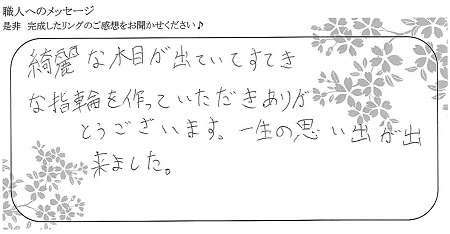 職人へのメッセージ
是非 完成したリングのご感想をお聞かせください♪
綺麗な木目が出ていてすてき
な指輪を作っていただきありが
とうございます。一生の思い出が出
来ました。